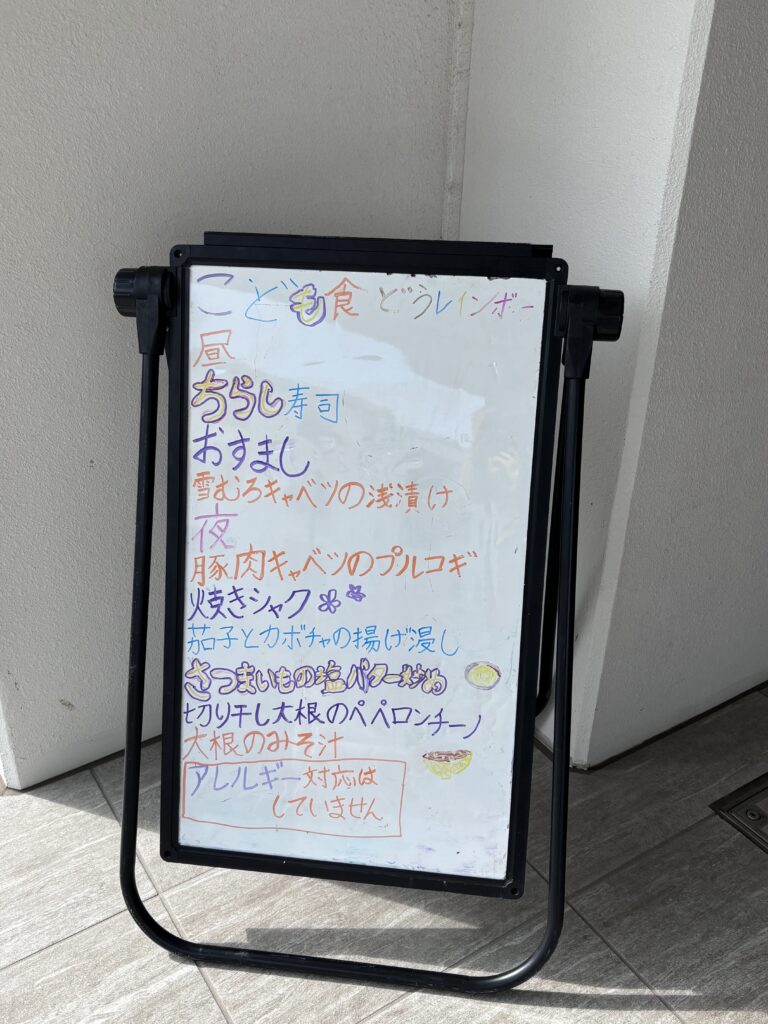 こども食どうレインボー
昼
ちらし寿司
おすまし
雪むろキャベツの浅漬け
夜
豚肉キャベツのプルコギ
焼きシャク
茄子とカボチャの揚げ浸し
さつまいもの塩バター炒め
切り干し大根のペペロンチーノ
大根のみそ汁
アレルギー対応は
していません